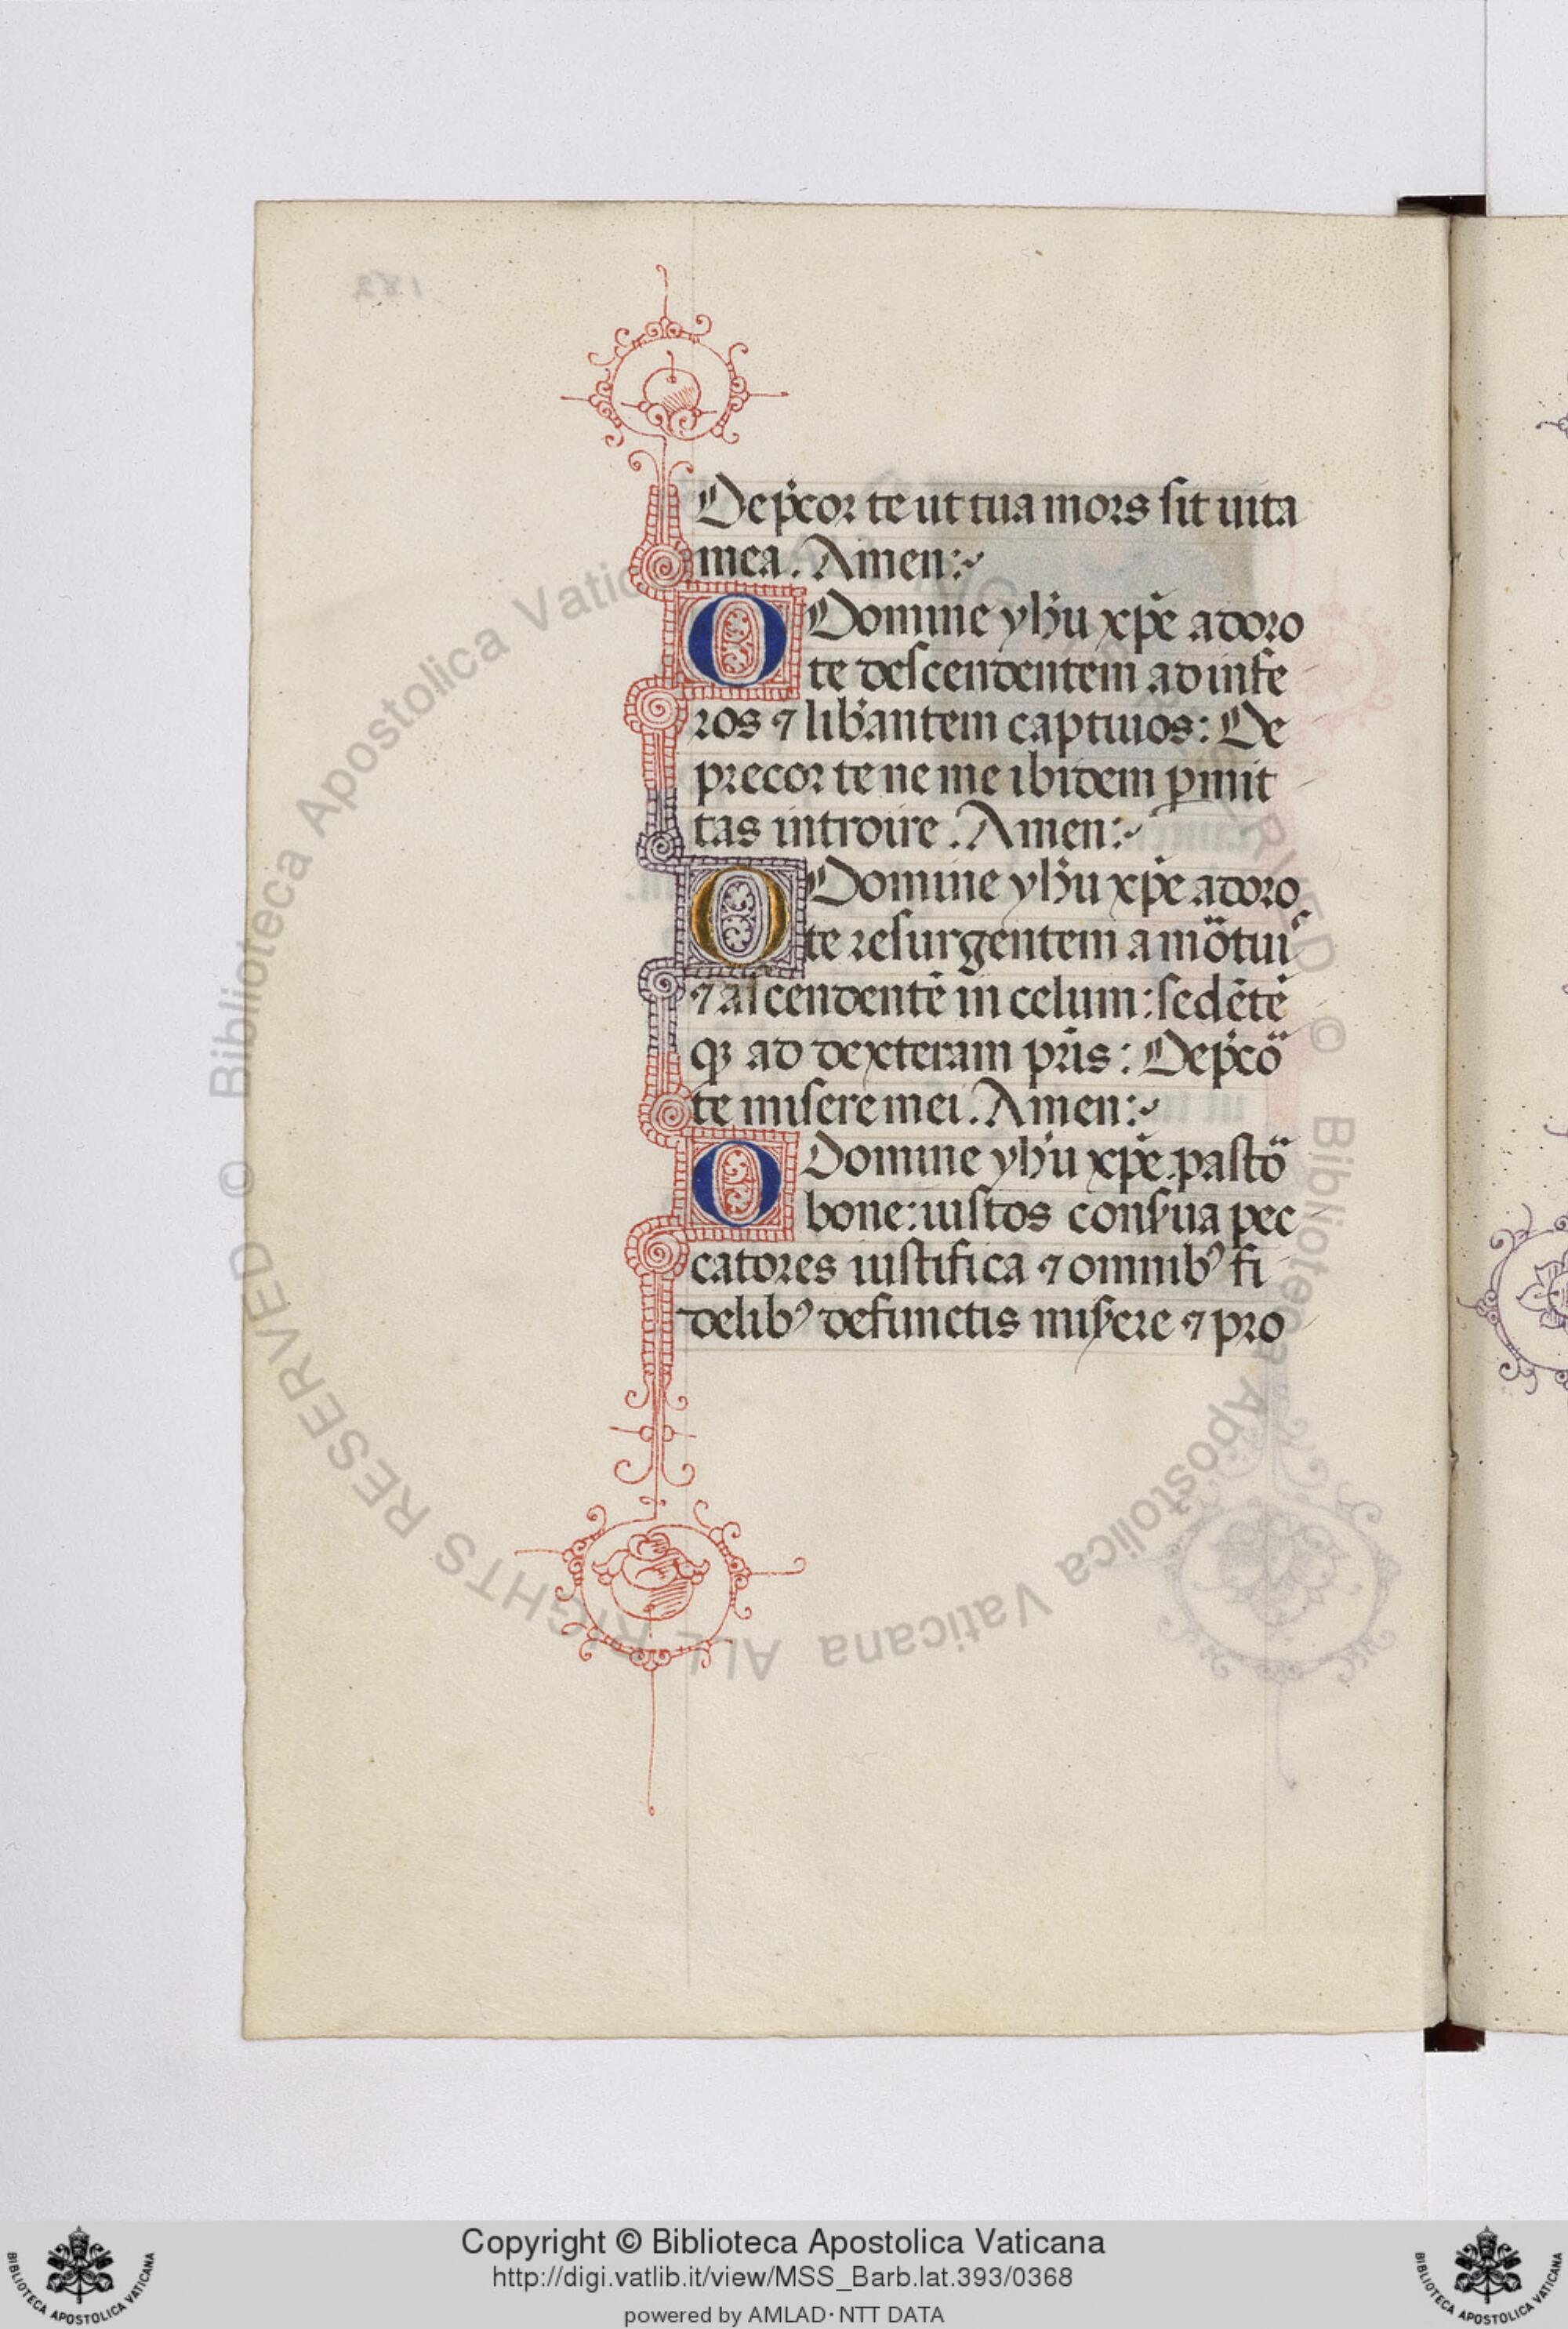 Dep̃cor te ut tua mors sit uita
mea. Amen:~
O Domine yh̃u xp̃e adoro
te descendentem ad infe
ros ⁊ lib̃antem captiuos: De
precor te ne me ibidem ꝑmit
tas introire. Amen:~
O Domine yh̃u xp̃e adoro
te resurgentem a mõtuis
⁊ ascendentẽ in celum: sedẽtẽ
qꝫ ad dexteram pr̃is: Dep̃cõ
te miseremei. Amen:~
O Domine yh̃u xp̃e pastõ
bone: iustos cons̃ua pec
catores iustifica ⁊ omnibꝰ fi
delibꝰ defunctis mis̃ere ⁊ pro
© Biblioteca Apostolica Vaticana ALL RIGHTS RESERVED
Copyright © Biblioteca Apostolica Vaticana
http://digi.vatlib.it/view/MSS_Barb.lat.393/0368
powered by AMLAD·NTT DATA
BIBLIOTECA APOSTOLICA VATICANA
BIBLIOTECA APOSTOLICA VATICANA